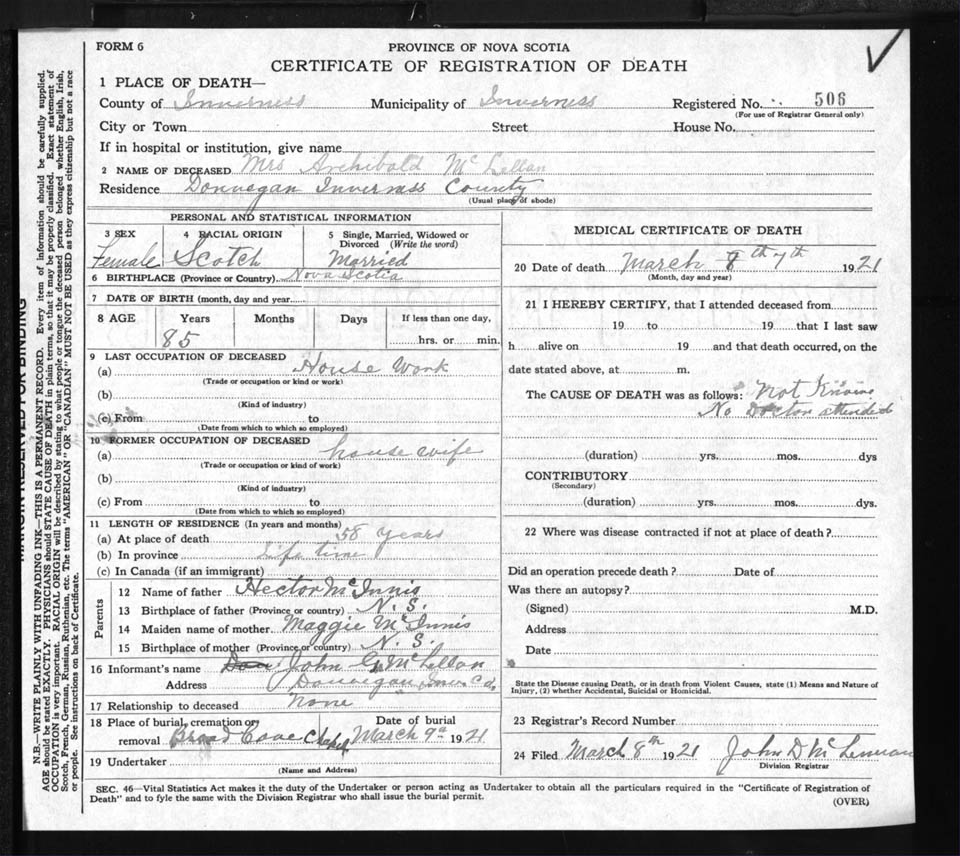 FORM 6
PROVINCE OF NOVA SCOTIA
CERTIFICATE OF REGISTRATION OF DEATH
1 PLACE OF DEATH—
County of Inverness Municipality of Inverness Registered No. 506
(For use of Registrar General only)
City or Town Street House No.
If in hospital or institution, give name
2 NAME OF DECEASED Mrs Archibald McLellan
Residence Dunvegan Inverness County
(Usual place of abode)
PERSONAL AND STATISTICAL INFORMATION
3 SEX 4 RACIAL ORIGIN 5 Single, Married, Widowed or Divorced (Write the word)
Female Scotch Married
6 BIRTHPLACE (Province or Country) Nova Scotia
7 DATE OF BIRTH (month, day and year)
8 AGE Years Months Days If less than one day,
85 hrs. or min.
9 LAST OCCUPATION OF DECEASED
(a) House Work
(Trade or occupation or kind or work)
(b)
(Kind of industry)
(c) From to
(Date from which to which so employed)
10 FORMER OCCUPATION OF DECEASED
(a) house wife
(Trade or occupation or kind of work)
(b)
(Kind of industry)
(c) From to
(Date from which to which so employed)
11 LENGTH OF RESIDENCE (In years and months)
(a) At place of death 58 years
(b) In province Life time
(c) In Canada (if an immigrant)
Parents
12 Name of father Hector McInnis
13 Birthplace of father (Province or country) N. S.
14 Maiden name of mother Maggie McInnis
15 Birthplace of mother (Province or country) N. S.
16 Informant's name John G. McLellan
Address Dunvegan Inv. Co.
17 Relationship to deceased None
18 Place of burial, cremation or removal Broad Cove Chapel Date of burial March 9th 1921
19 Undertaker
(Name and Address)
MEDICAL CERTIFICATE OF DEATH
20 Date of death March 8th 7th 1921
(Month, day and year)
21 I HEREBY CERTIFY, that I attended deceased from
19 to 19 that I last saw
h alive on 19 and that death occurred, on the
date stated above, at m.
The CAUSE OF DEATH was as follows: Not Known
No Doctor attended
(duration) yrs. mos. dys
CONTRIBUTORY
(Secondary)
(duration) yrs. mos. dys.
22 Where was disease contracted if not at place of death?
Did an operation precede death? Date of
Was there an autopsy?
(Signed) M.D.
Address
Date
State the Disease causing Death, or in death from Violent Causes, state (1) Means and Nature of
Injury, (2) whether Accidental, Suicidal or Homicidal.
23 Registrar's Record Number
24 Filed March 8th 1921 John D McLennan
Division Registrar
SEC. 46—Vital Statistics Act makes it the duty of the Undertaker or person acting as Undertaker to obtain all the particulars required in the "Certificate of Registration of
Death" and to fyle the same with the Division Registrar who shall issue the burial permit.
(OVER)
MARGIN RESERVED FOR BINDING
N.B.—WRITE PLAINLY WITH UNFADING INK—THIS IS A PERMANENT RECORD. Every item of information should be carefully supplied.
AGE should be stated EXACTLY. PHYSICIANS should STATE CAUSE OF DEATH in plain terms, so that it may be properly classified. Exact statement of
OCCUPATION is very important. RACIAL ORIGIN will be described by stating to what people or tongue the deceased person belonged whether English, Irish,
Scotch, French, German, Russian, Ruthenian, etc. The terms "AMERICAN" OR "CANADIAN" MUST NOT BE USED as they express citizenship but not a race
or people. See instructions on back of Certificate.